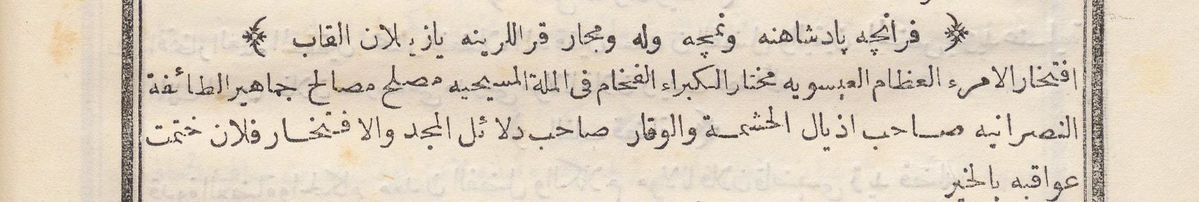 فرانچه پادشاهنه ونمچه وله ومجار قراللرينه يازيلان القاب
افتخار الامرء العظام العيسويه مختار الكبراء الفخام فى الملة المسيحيه مصلح مصالح جماهير الطائفة
النصرانيه صاحب اذيال الحشمة والوقار صاحب دلائل المجد والافتخار فلان ختمت
عواقبه بالخير